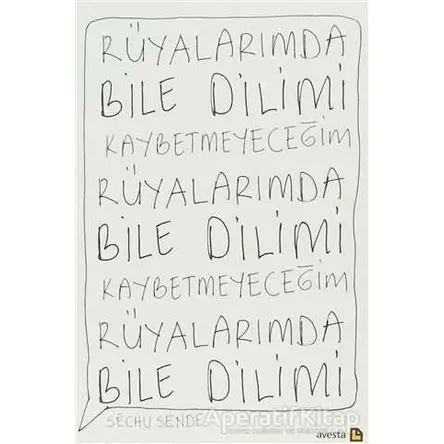 RÜYALARIMDA
BİLE DİLİMİ
KAYBETMEYECEĞİM
RÜYALARIMDA
BİLE DİLİMİ
KAYBETMEYECEĞİM
RÜYALARIMDA
BİLE DİLİMİ
SÉCHU SENDE
AperatifKitap
avesta